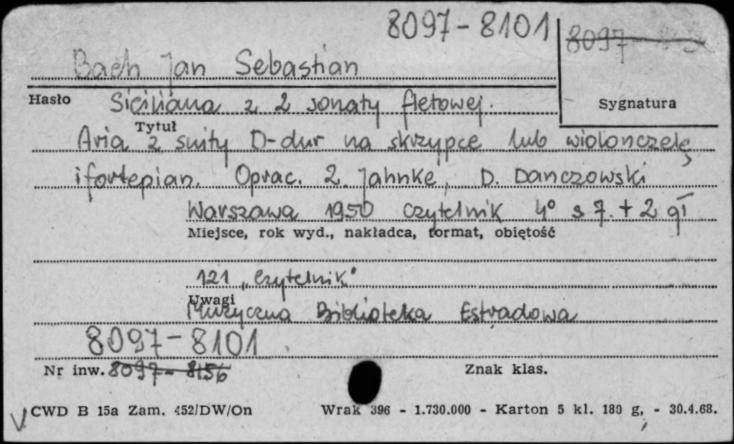 8097-8101 8097
Bach Jan Sebastian
Hasło Siciliana z 2 sonaty fletowej. Sygnatura
Tytuł
Aria z suity D-dur na skrzypce lub wiolonczelę
i fortepian. Oprac. Z. Jahnke, D. Danczowski
Warszawa 1950 Czytelnik 4° s 7. + 2 gł
Miejsce, rok wyd., nakładca, format, objętość
121 "Czytelnik"
Uwagi
Muzyczna Biblioteka Estradowa
8097-8101
Nr inw. 8097-8156 Znak klas.
CWD B 15a Zam. 452/DW/On Wrak 396 - 1.730.000 - Karton 5 kl. 180 g, - 30.4.68.